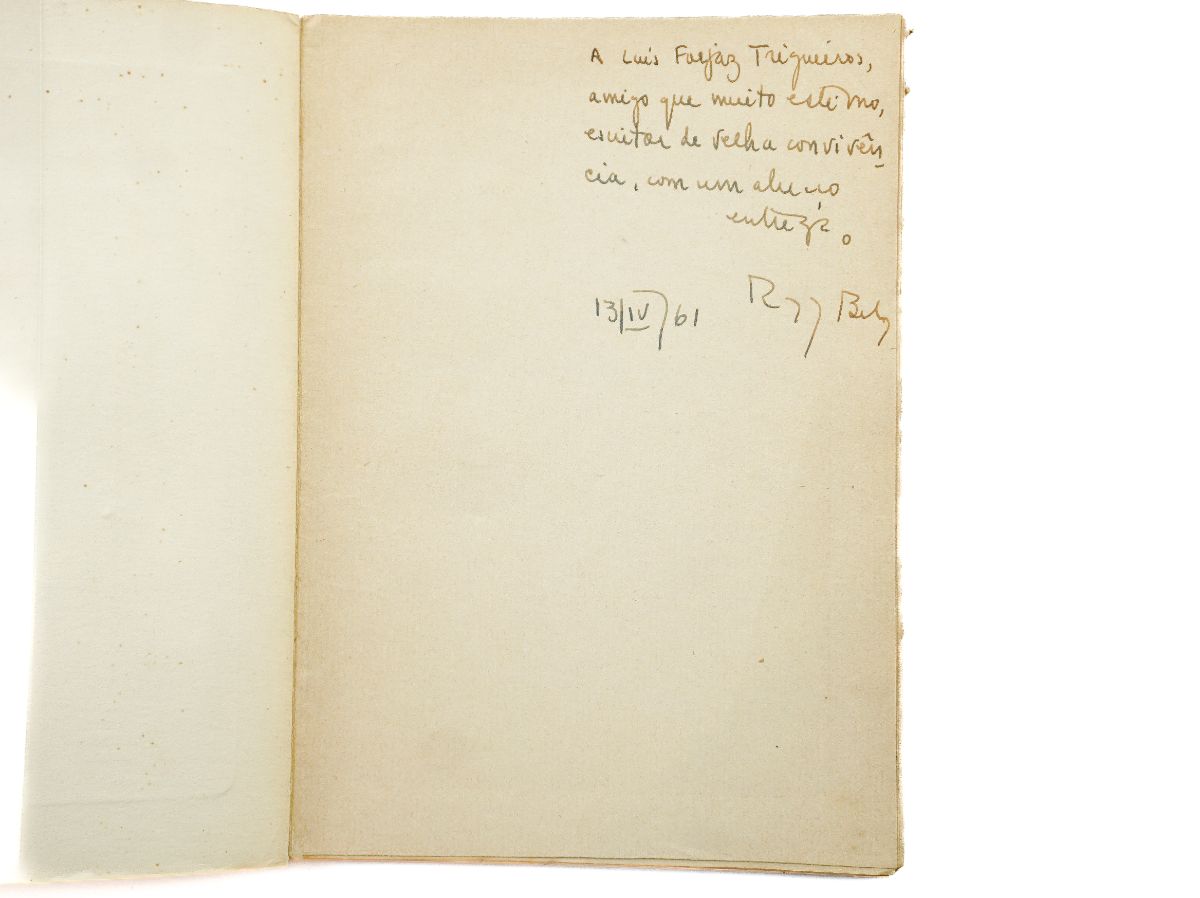 A Luís Forjaz Trigueiros,
amigo que muito estimo,
escritor de velha convivên-
cia, com um abraço
13/IV/61 Ruy Belo